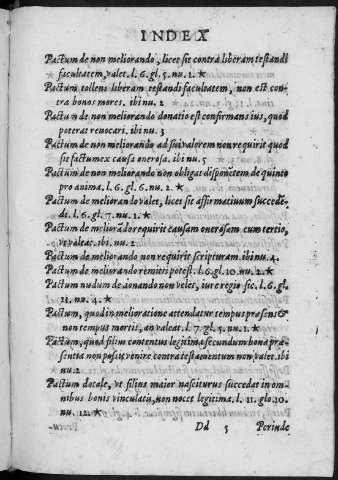 INDEX
Pactum de non meliorando, licet sit contra liberam testandi
facultatem, valet. l. 6. gl. 5. nu. 1. ★
Pactum tollens liberam testandi facultatem, non est con
tra bonos mores. ibi nu. 2
Pactum de non meliorando donatio est confirmans ius, quod
poterat reuocari. ibi nu. 3
Pactum de non meliorando ad sui valorem non requirit quod
sit factum ex causa onerosa. ibi nu. 5
Pactum de non meliorando non obligat disponētem de quinto
pro anima. l. 6. gl. 6. nu. 2. ★
Pactum de meliorando valet, licet sit affirmatiuum succedē-
di. l. 6. gl. 7. nu. 1. ★
Pactum de meliorādo requirit causam onerosam cum tertio,
vt valeat. ibi. nu. 2
Pactum de meliorando non requirit scripturam. ibi nu. 4.
Pactum de meliorando remitti potest. l. 6. gl. 10. nu. 2. ★
Pactum nudum de donando non valet, iure regio sic. l. 6. gl.
11. nu. 4. ★
Pactum, quod in melioratione attendatur tempus præsens &
non tempus mortis, an valeat. l. 7. gl. 5. nu. 1. ★
Pactum, quod filius contentus legitima secundum bona præ-
sentia non possit venire contra testamentum non valet. ibi
nu. 2
Pactum dotale, vt filius maior nasciturus succedat in om
nibus bonis vinculatis, non nocet legitima. l. 11. glo. 10.
nu. 12. ★
Dd 3 Perinde